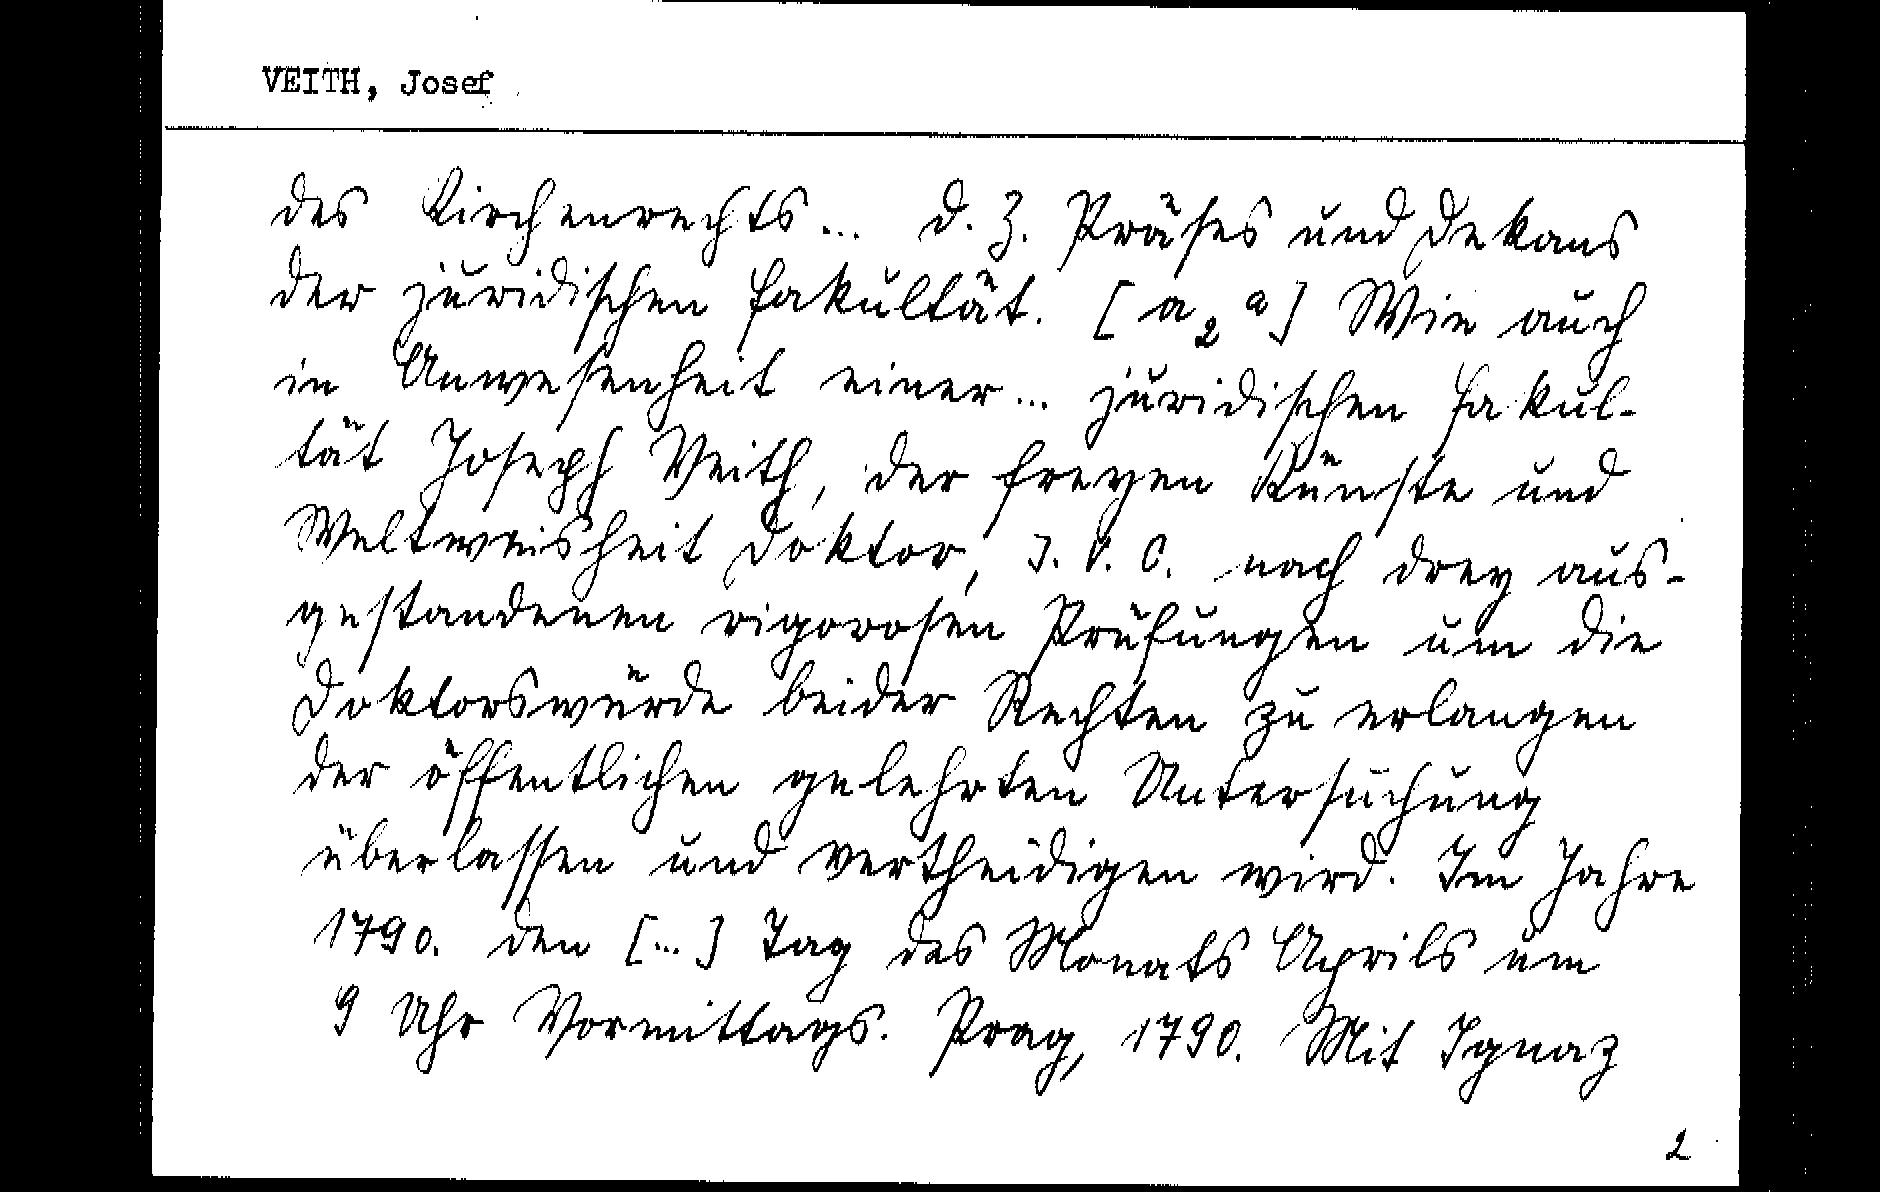 VEITH, Josef
des Kirchenrechts... d. Z. Präses und Dekans
der juridischen Fakultät. [a₂ᵃ] Wie auch
in Anwesenheit einer... juridischen Fakul-
tät Joseph Veith, der freyen Künste und
Weltweisheit Doktor, J. V. C. nach drey aus-
gestandenen rigorosen Prüfungen um die
Doktorswürde beider Rechten zu erlangen
der öffentlichen gelehrten Untersuchung
überlassen und vertheidigen wird. Im Jahre
1790. den [...] Tag des Monats Aprils um
9 Uhr Vormittags. Prag, 1790. Mit Ignaz
2